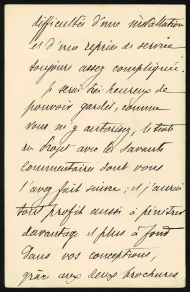 difficultés d'une installation
et d'une reprise de service
toujours assez compliquée.
Je serai très heureux de
pouvoir garder, comme
vous m'y autorisez, le texte
du Projet avec les savants
commentaires dont vous
l'avez fait suivre; et j'aurai
tout profit aussi à pénétrer
davantage et plus à fond
dans vos conceptions,
grâce aux deux brochures